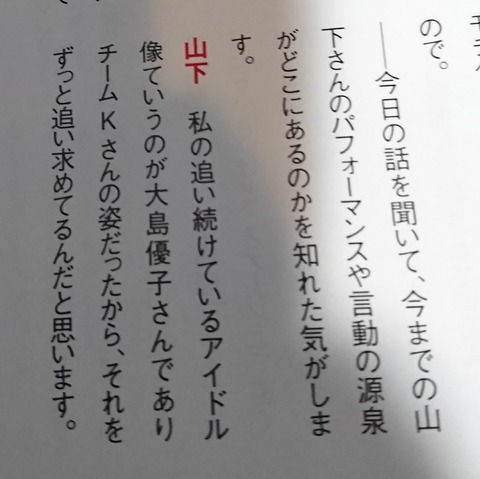 ので。
──今日の話を聞いて、今までの山
下さんのパフォーマンスや言動の源泉
がどこにあるのかを知れた気がしま
す。
山下　私の追い続けているアイドル
像ていうのが大島優子さんであり
チームKさんの姿だったから、それを
ずっと追い求めてるんだと思います。